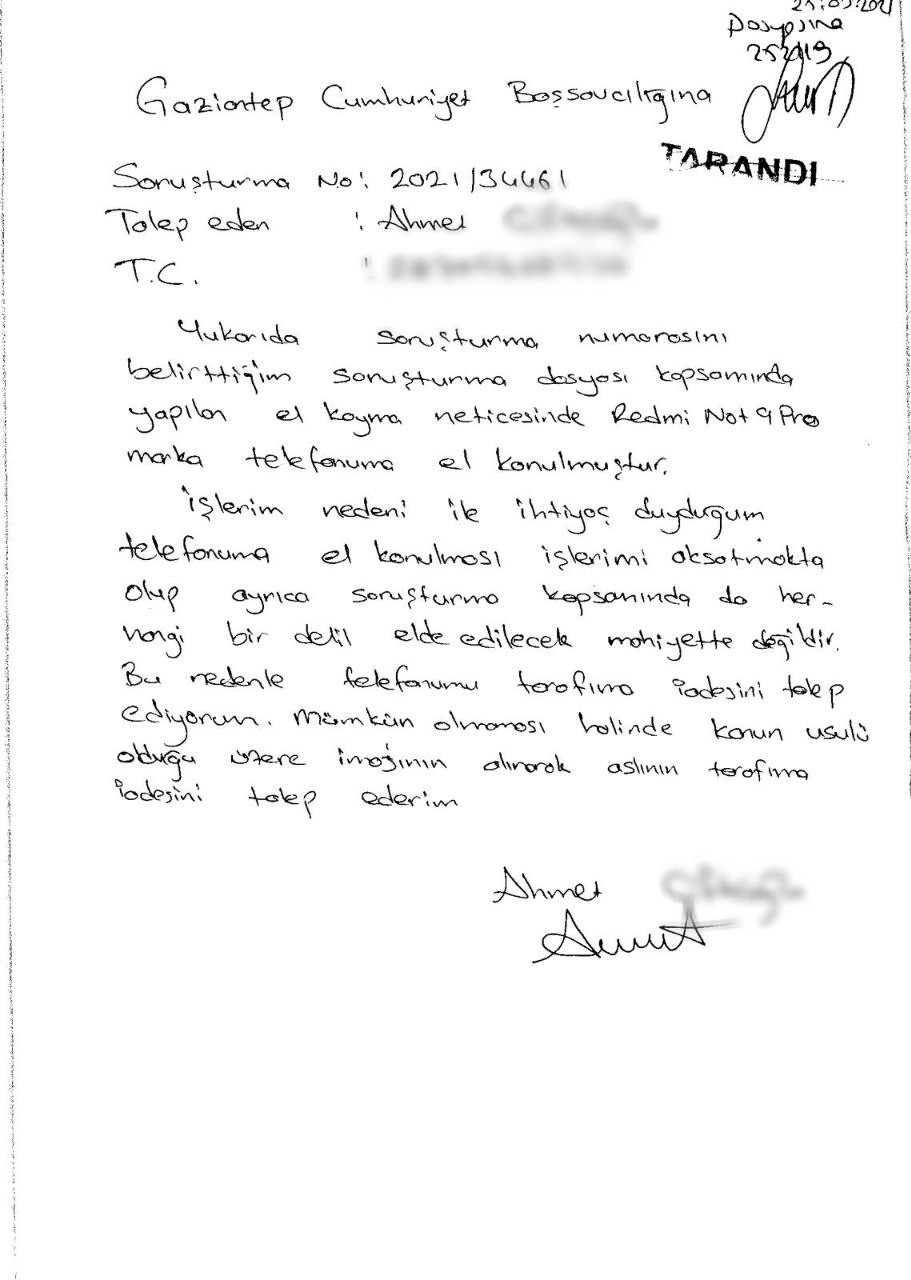 Dosyasına
252419
Gaziantep Cumhuriyet Başsavcılığına
TARANDI
Soruşturma No: 2021/34461
Talep eden : Ahmet
T.C. :
Yukarıda soruşturma numarasını
belirttiğim soruşturma dosyası kapsamında
yapılan el koyma neticesinde Redmi Not 9 Pro
marka telefonuma el konulmuştur.
İşlerim nedeni ile ihtiyaç duyduğum
telefonuma el konulması işlerimi aksatmakta
olup ayrıca soruşturma kapsamında da her-
hangi bir delil elde edilecek mahiyette değildir.
Bu nedenle telefonumu tarafıma iadesini talep
ediyorum. Mümkün olmaması halinde kanun usulü
olduğu üzere imajının alınarak aslının tarafıma
iadesini talep ederim
Ahmet